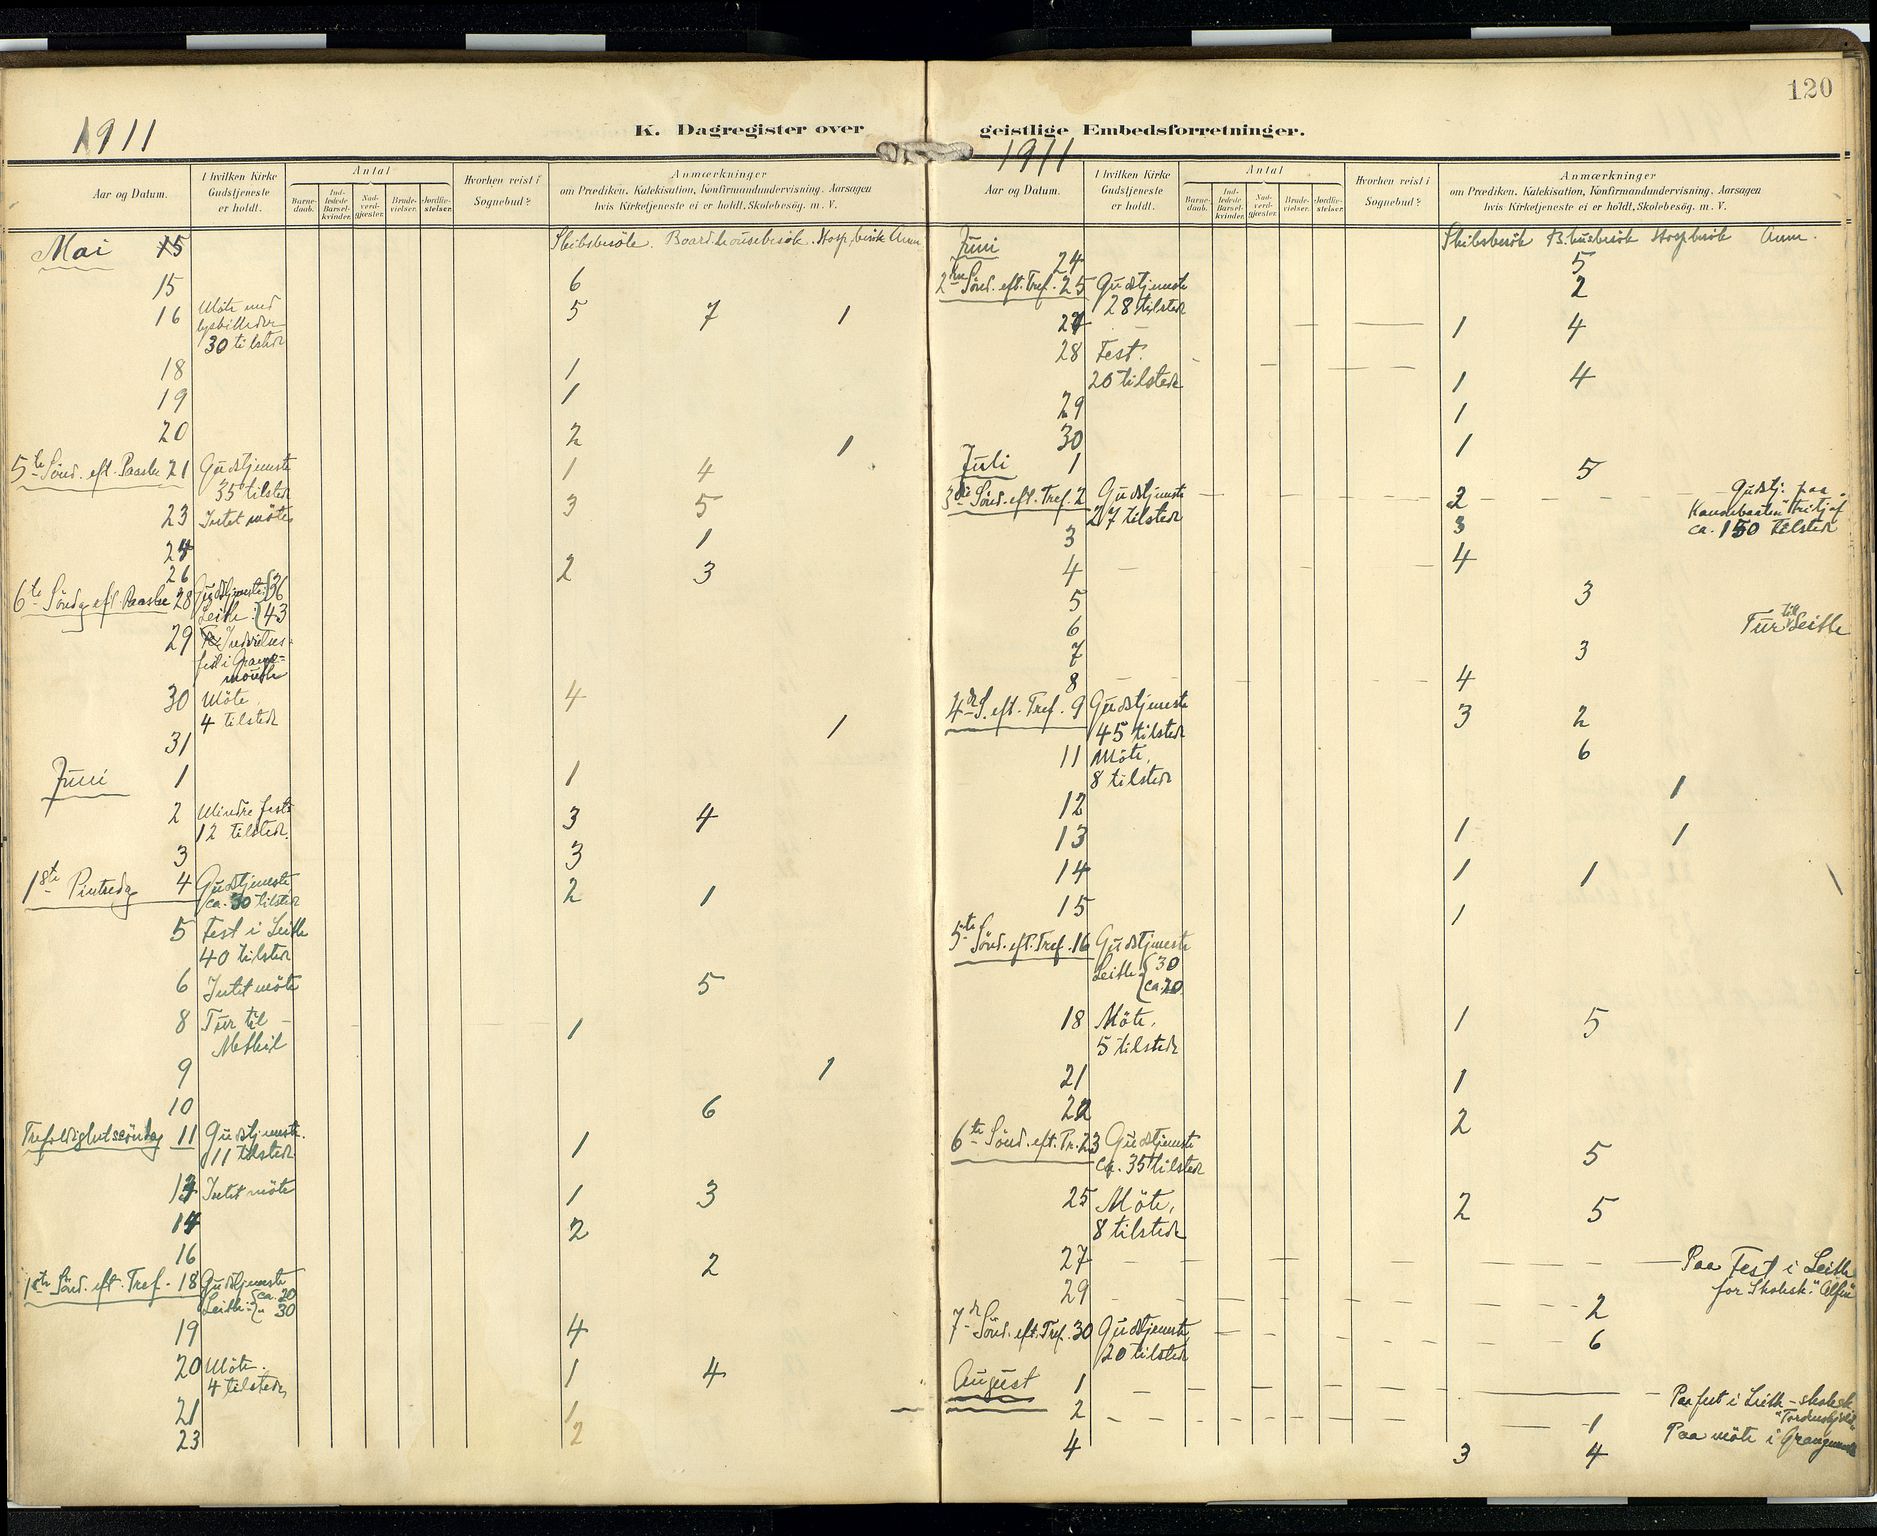 120
K. Dagregister over geistlige Embedsforretninger.
1911
Aar og Datum.
I hvilken Kirke Gudstjeneste er holdt.
Antal
Barnedaab.
Indledede Barselkvinder.
Nadverdgjæster.
Brudevielser.
Jordfæstelser.
Hvorhen reist i Sognebud?
Anmærkninger
om Prædiken, Katekisation, Konfirmandundervisning, Aarsagen
hvis Kirketjeneste ei er holdt, Skolebesøg, m. V.
Mai 15 Skibsbesök. Boardhousebesök. Hosp.besök Anm.
15 6
16 Möte med 5 7 1
lysbilleder
30 tilstede
18 1
19 1
20 2 1
5te Sönd. eft. Paaske 21 Gudstjeneste 1 4
35 tilstede
23 Intet möte 3 5
24 1
26 2 3
6te Söndg eft. Paaske 28 Gudstjeneste: 36
Leith: 43
29
fest i Grange=
mouth
30 Möte, 4
4 tilstede
31 1
Juni 1 1
2 Mindre fest 3 4
12 tilstede.
3 3
1ste Pintsedag 4 Gudstjeneste 2 1
ca. 30 tilstede
5 Fest i Leith
40 tilstede
6 Intet möte 5
8 Tur til 1
Methil
9 1
10 6
Trefoldighetssöndag 11 Gudstjeneste. 1
11 tilstede
13 Intet möte 1 3
14 2
16 2
1ste Sönd. eft. Tref. 18 Gudstjeneste ca. 20
Leith: " 30
19 4
20 Möte. 1 4
4 tilstede
21 1
23 2
1911
Aar og Datum.
I hvilken Kirke Gudstjeneste er holdt.
Antal
Barnedaab.
Indledede Barselkvinder.
Nadverdgjæster.
Brudevielser.
Jordfæstelser.
Hvorhen reist i Sognebud?
Anmærkninger
om Prædiken, Katekisation, Konfirmandundervisning, Aarsagen
hvis Kirketjeneste ei er holdt, Skolebesøg, m. V.
Juni Skibsbesök B.husbesök Hospbesök Anm.
24 5
2den Sönd. eft. Tref. 25 Gudstjeneste 2
28 tilstede
27 1 4
28 Fest.
20 tilstede 1 4
29 1
30 1
Juli 1 5
3die Sönd. eft. Tref. 2 Gudstjeneste 2 Gudstj. paa
27 tilstede Kanonbaaten "Fritjof"
3 3 ca. 150 tilstede
4 4
5 3
6 Tur til Leith
7 3
8 4
4de S. eft. Tref. 9 Gudstjeneste 3 2
45 tilstede
11 Möte, 6
8 tilstede
12 1
13 1 1
14 1 1
15 1
5te Sönd. eft. Tref. 16 Gudstjeneste
Leith: 30
ca. 20
18 Möte, 1 5
5 tilstede
21 1
22 2
6te Sönd. eft. Tr. 23 Gudstjeneste 5
ca. 35 tilstede
25 Möte, 2 5
8 tilstede
27 Paa Fest i Leith
for Skolesk. "Alfen"
29 2
7de Sönd. eft. Tref. 30 Gudstjeneste 6
20 tilstede
August 1 Paa fest i Leith - skolesk.
"Tordenskjold"
2 1 Paa möte i Grangemouth
4 3 4